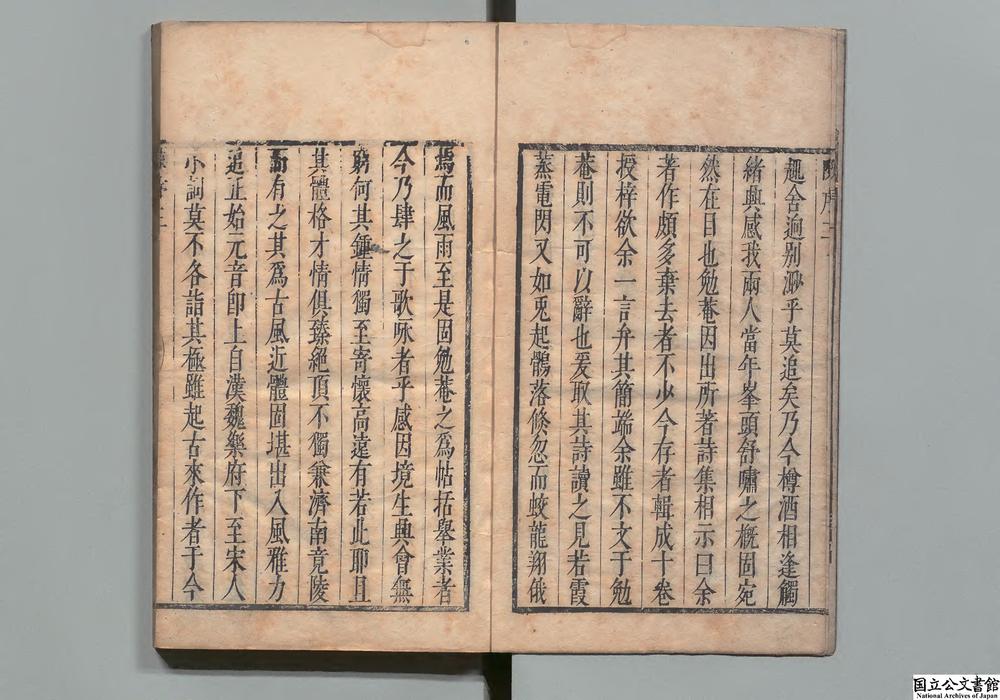 趣舍逈别渺乎莫追矣乃今樽酒相逢觸
緒興感我兩人當年峯頭舒嘯之槪固宛
然在目也勉菴因出所著詩集相示曰余
著作頗多棄去者不少今存者輯成十卷
授梓欲余一言弁其簡端余雖不文于勉
菴則不可以辭也爰取其詩讀之見若霞
蒸電閃又如兎起鶻落倏忽而蛟龍翔俄
焉而風雨至是固勉菴之爲帖括舉業者
今乃肆之于歌咏者乎感因境生興會無
窮何其鍾情獨至寄懷高遠有若此耶且
其體格才情俱臻絕頂不獨兼濟南竟陵
而有之其爲古風近體固堪出入風雅力
追正始元音卽上自漢魏樂府下至宋人
小詞莫不各詣其極雖起古來作者于今
国立公文書館
National Archives of Japan